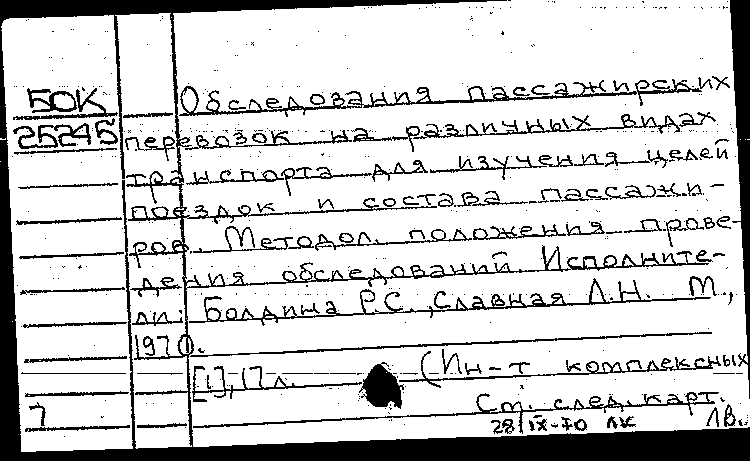 БОК
25245
Обследования пассажирских
перевозок на различных видах
транспорта для изучения целей
поездок и состава пассажи-
ров. Методол. положения прове-
дения обследований. Исполните-
ли: Болдина Р.С., Славная Л.Н. М.,
1970.
[1], 17 л. (Ин-т комплексных
См. след. карт.
7
28/IX-70 ЛК ЛВ.